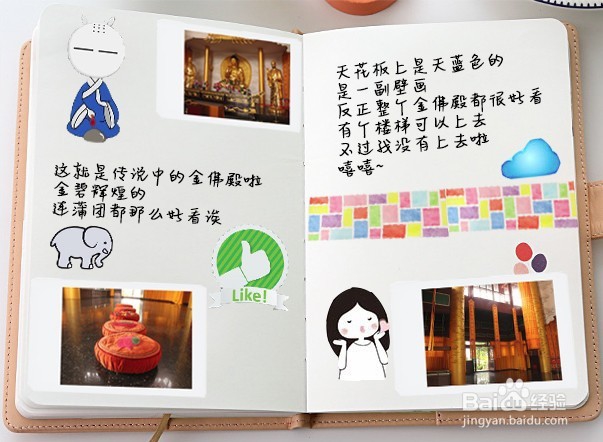 这就是传说中的金佛殿啦
金碧辉煌的
连蒲团都那么好看诶
Like!
天花板上是天蓝色的
是一副壁画
反正整个金佛殿都很好看
有个楼梯可以上去
不过我没有上去啦
嘻嘻~
Baidu经验
jingyan.baidu.com